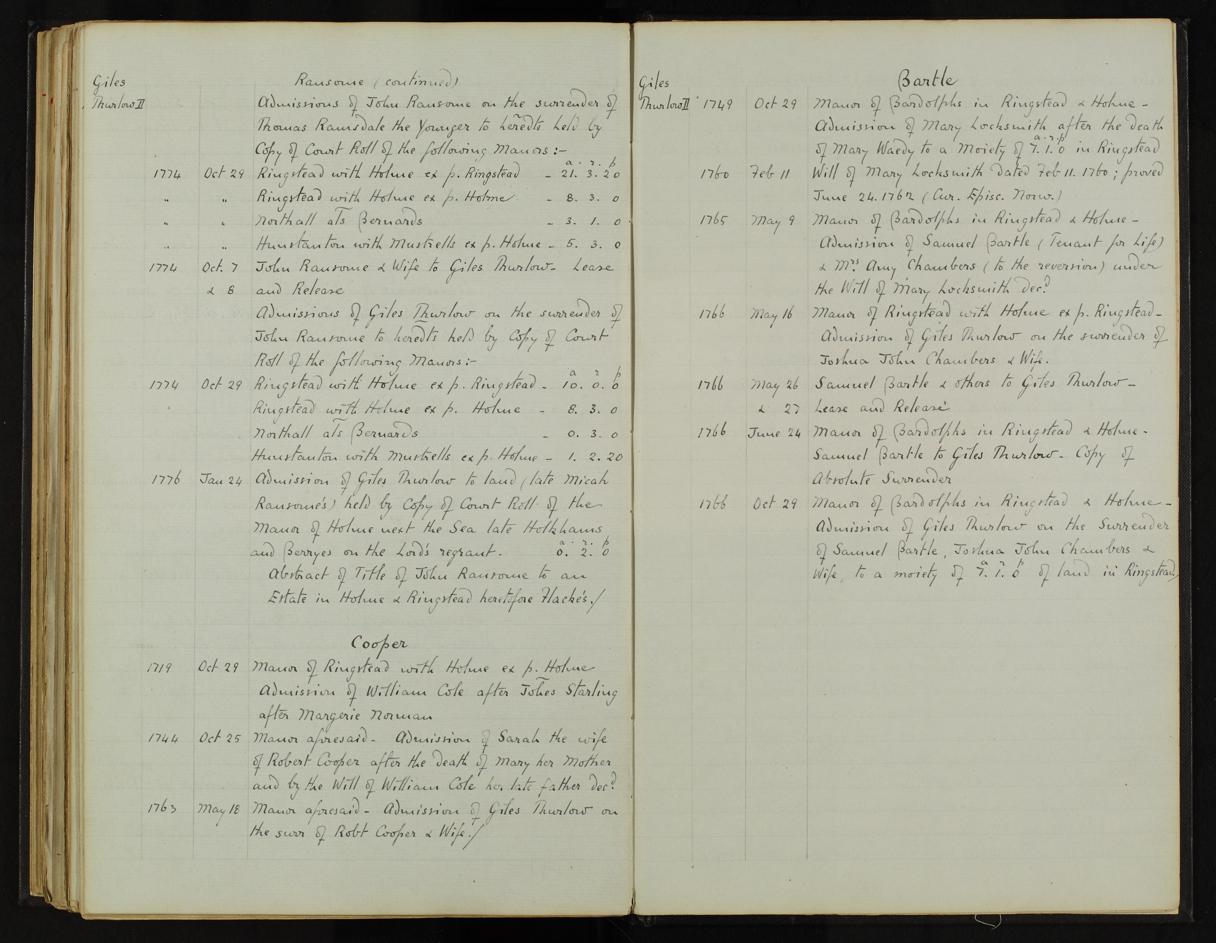 Giles
Thurlow II
Ransome (continued)
Admissions of John Ransome on the surrender of
Thomas Ramsdale the Younger to heredts held by
Copy of Court Roll of the following Manors:-
a. r. p
1774 Oct 29 Ringstead with Holme ex p. Ringstead - 21. 3. 20
" " Ringstead with Holme ex p. Holme - 8. 3. 0
" " Northall als Bernards - 3. 1. 0
" " Hunstanton with Mustrells ex p. Holme - 5. 3. 0
1774 Oct. 7 John Ransome & Wife to Giles Thurlow - Lease
& 8 and Release
Admissions of Giles Thurlow on the surrender of
John Ransome to heredts held by Copy of Court
Roll of the following Manors:-
a r p
1774 Oct 29 Ringstead with Holme ex p. Ringstead - 10. 0. 0
Ringstead with Holme ex p. Holme - 8. 3. 0
Northall als Bernards - 0. 3. 0
Hunstanton with Mustrells ex p. Holme - 1. 2. 20
1776 Jan 24 Admission of Giles Thurlow to land (late Micah
Ransome's) held by Copy of Court Roll of the
Manor of Holme next the Sea late Holkhams
a. r. p
and Berryes on the Lord's regrant. 0. 2. 0
Abstract of Title of John Ransome to an
Estate in Holme & Ringstead heretofore Flackés./
Cooper
1719 Oct 29 Manor of Ringstead with Holme ex p. Holme
Admission of William Cole after Johes Starling
after Margerie Norman
1744 Oct 25 Manor aforesaid - Admission of Sarah the wife
of Robert Cooper after the death of Mary her Mother
and by the Will of William Cole her late father decd
1763 May 18 Manor aforesaid - Admission of Giles Thurlow on
the surr of Robt Cooper & Wife./
Giles
Thurlow II
Bartle
1749 Oct 29 Manor of Bardolphs in Ringstead & Holme -
Admission of Mary Locksmith after the death
a. r. p
of Mary Waedy to a Moiety of 7. 1. 0 in Ringstead
1760 Feb 11 Will of Mary Locksmith dated Feb 11. 1760; proved
June 24. 1762 (Cur. Episc. Norw.)
1765 May 9 Manor of Bardolphs in Ringstead & Holme -
Admission of Samuel Bartle (Tenant for Life)
& Mrs Amy Chambers (to the reversion) under
the Will of Mary Locksmith decd
1766 May 16 Manor of Ringstead with Holme ex p. Ringstead -
Admission of Giles Thurlow on the surrender of
Joshua John Chambers & Wife.
1766 May 26 Samuel Bartle & others to Giles Thurlow -
& 27 Lease and Release
1766 June 24 Manor of Bardolphs in Ringstead & Holme -
Samuel Bartle to Giles Thurlow - Copy of
Absolute Surrender
1766 Oct 29 Manor of Bardolphs in Ringstead & Holme -
Admission of Giles Thurlow on the Surrender
of Samuel Bartle, Joshua John Chambers &
a r p
Wife, to a moiety of 7. 1. 0 of land in Ringstead